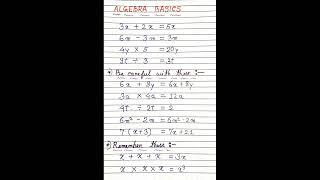 ALGEBRA BASICS
3x + 2x = 5x
6m - 3m = 3m
4y × 5 = 20y
9t ÷ 3 = 3t
Be careful with these :-
6x + 8y = 6x + 8y
3a × 4a = 12a
4t ÷ 2t = 2
6m² - 2m = 6m² - 2m
7 (x+3) = 7x + 21
Remember these :-
x + x + x = 3x
x × x × x = x³